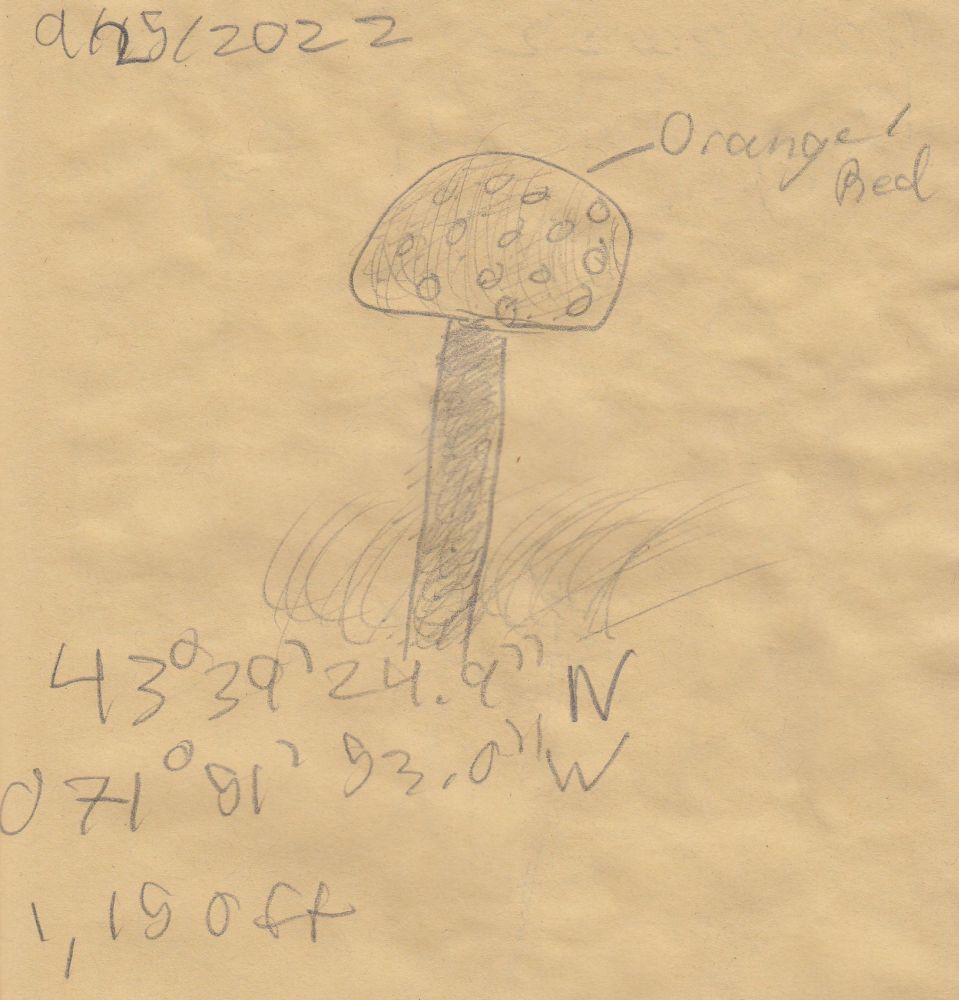 9/25/2022
Orange/
Red
43°39'24.9" N
071°51'53.0" W
1,150ft